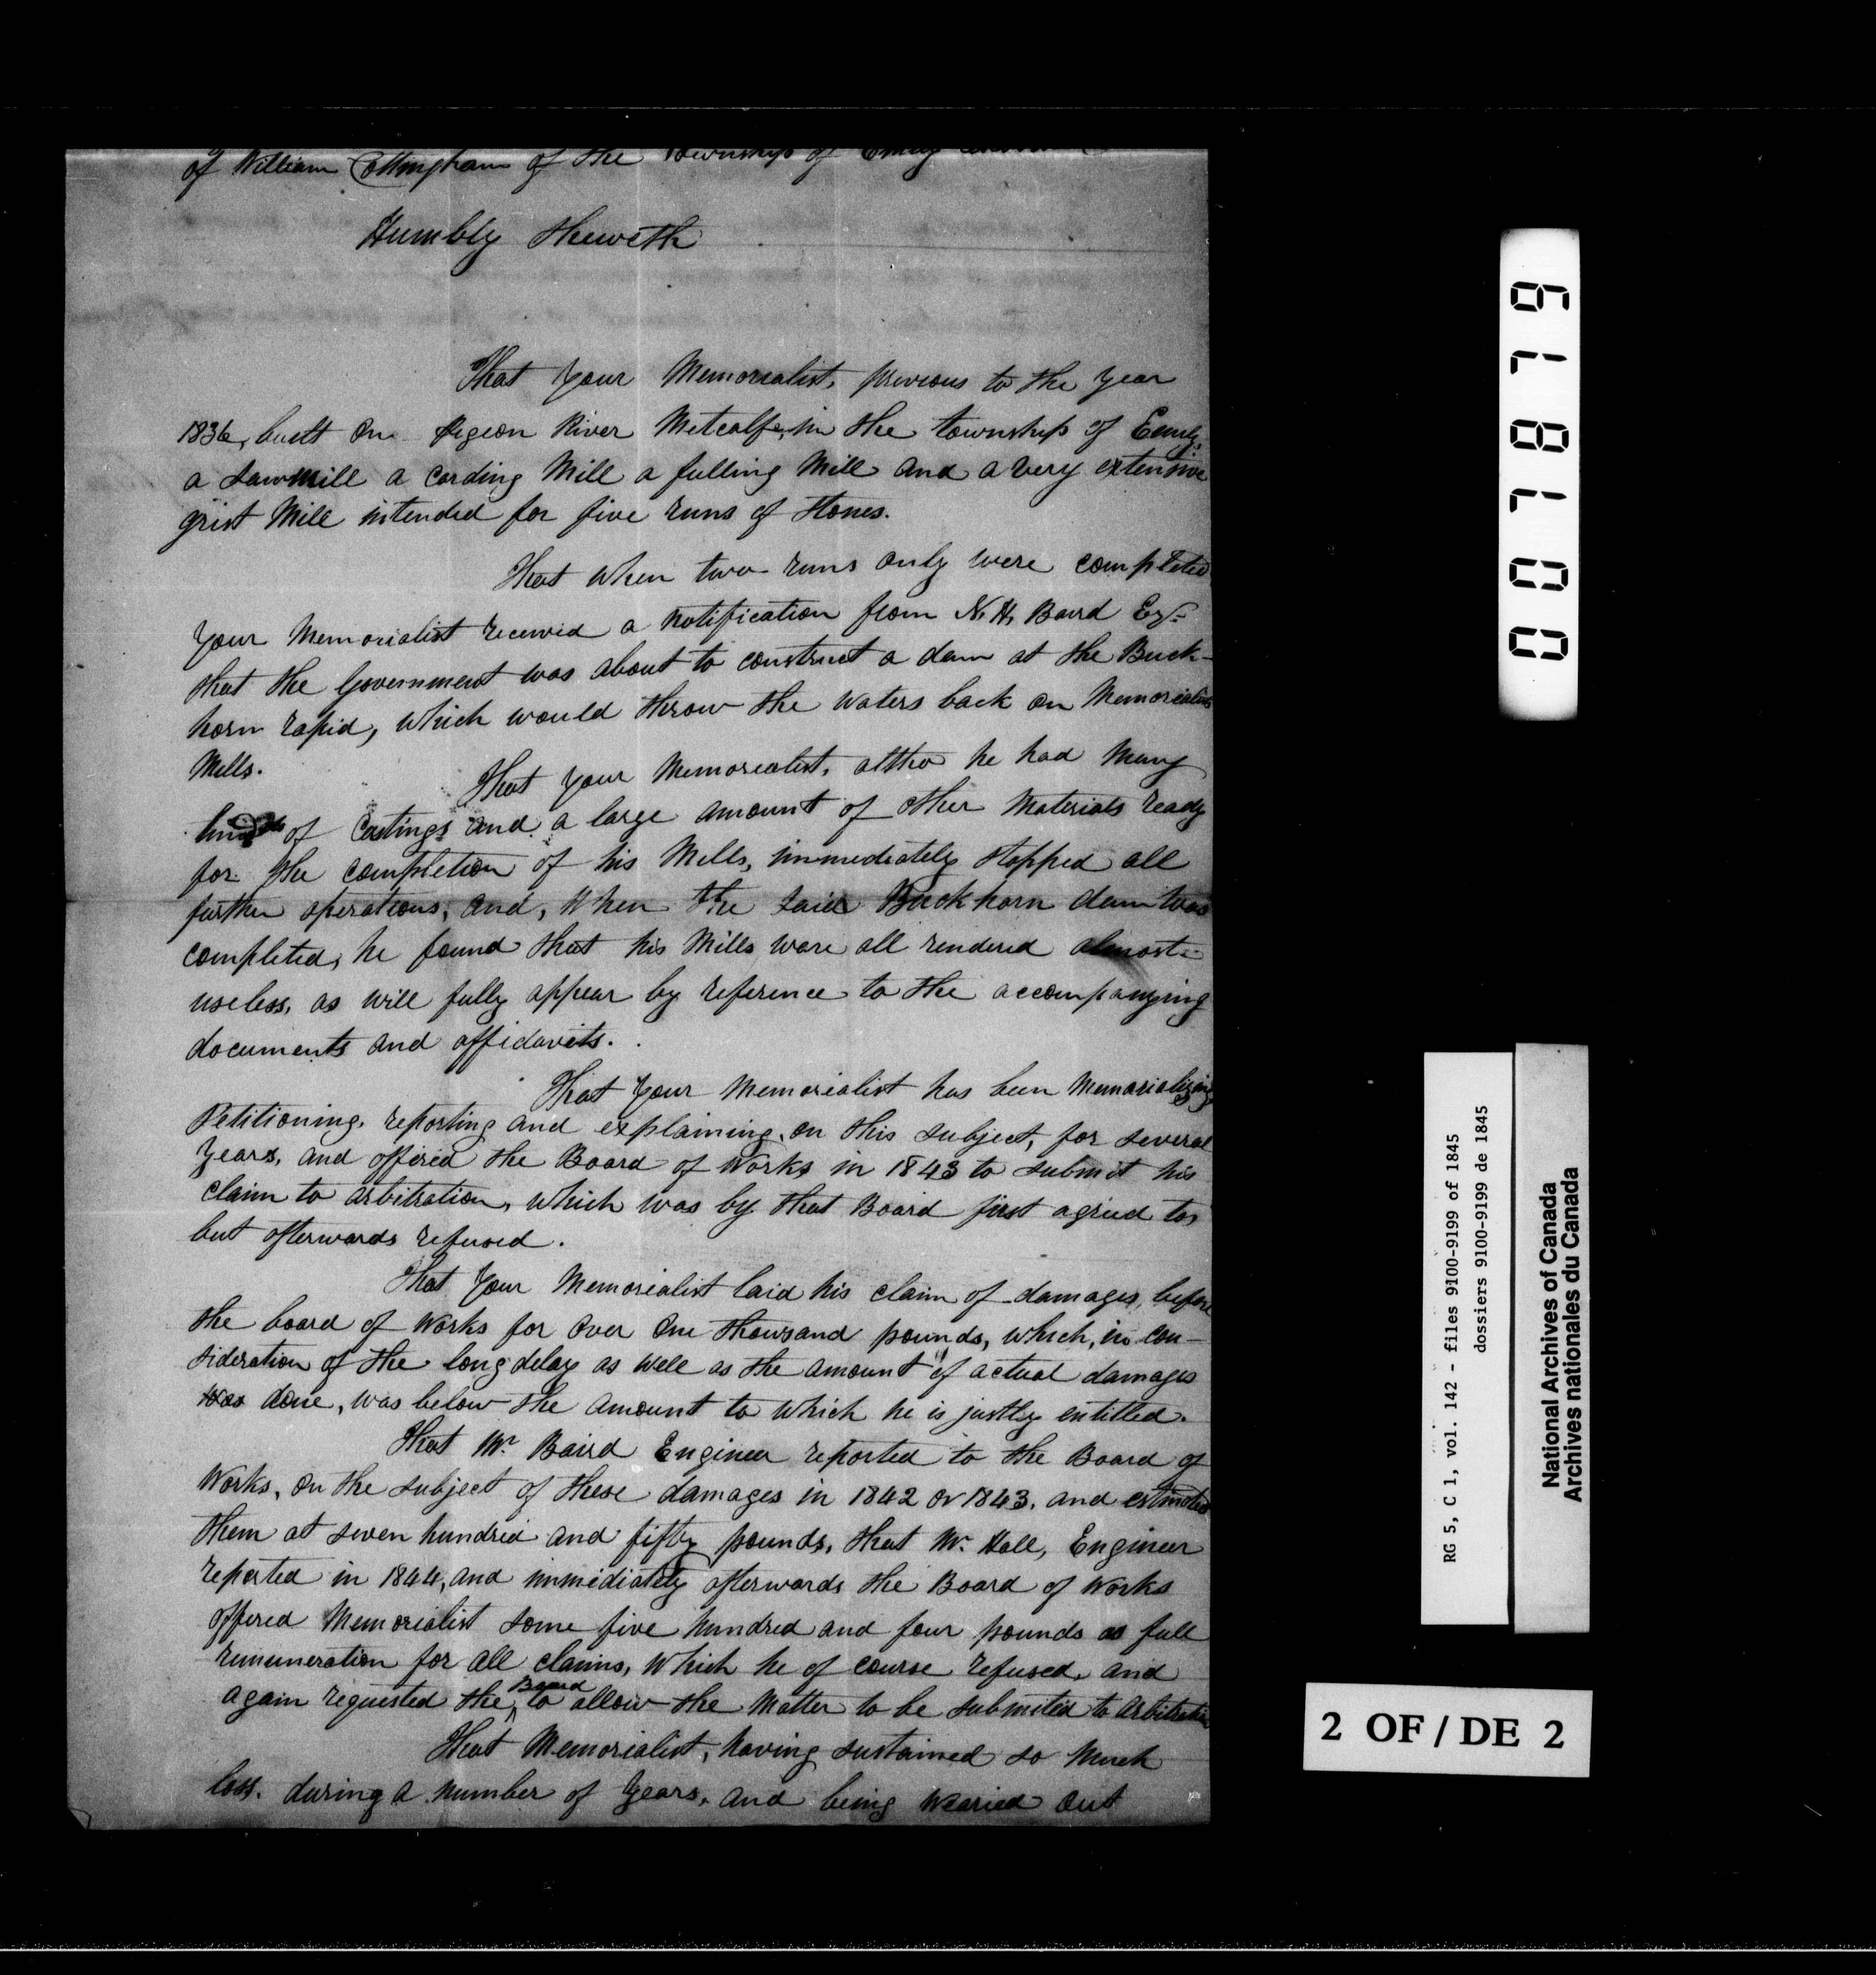 of William Cottingham of the Township of Emily
Humbly Sheweth
That your Memorialist, previous to the year
1836, built on Pigeon River Metcalfe, in the township of Emily,
a sawmill a carding Mill a fulling Mill and a very extensive
grist Mill intended for five runs of Stones.
That when two runs only were completed
your Memorialist received a notification from N. H. Baird Esqr
that the Government was about to construct a dam at the Buck-
horn rapid, which would throw the waters back on Memorialists
Mills.
That your Memorialist, altho he had many
of Castings and a large amount of other Materials ready
for the completion of his Mills, immediately stopped all
further operations, and, when the said Buckhorn dam was
completed, he found that his Mills ware all rendered almost
useless, as will fully appear by reference to the accompanying
documents and affidavits.
That your Memorialist has been Memorializing
Petitioning, reporting and explaining, on this subject, for several
years, and offered the Board of Works in 1843 to submit his
claim to arbitration, which was by that Board first agreed to,
but afterwards refused.
That your Memorialist laid his claim of damages, before
the board of Works for over One thousand pounds, which, in con-
sideration of the long delay as well as the amount of actual damages
was done, was below the amount to which he is justly entitled.
That Mr. Baird Engineer reported to the Board of
Works, on the subject of these damages in 1842 or 1843, and estimated
them at seven hundred and fifty pounds, that Mr. Hall, Engineer
reported in 1844, and immediately afterwards the Board of Works
offered Memorialist some five hundred and four pounds as full
remuneration for all claims, which he of course refused, and
again requested the Board to allow the Matter to be submited to Arbitration
That Memorialist, having sustained so much
loss, during a number of years, and being wearied out
007879
RG 5, C 1, vol. 142 - files 9100-9199 of 1845
dossiers 9100-9199 de 1845
National Archives of Canada
Archives nationales du Canada
2 OF / DE 2